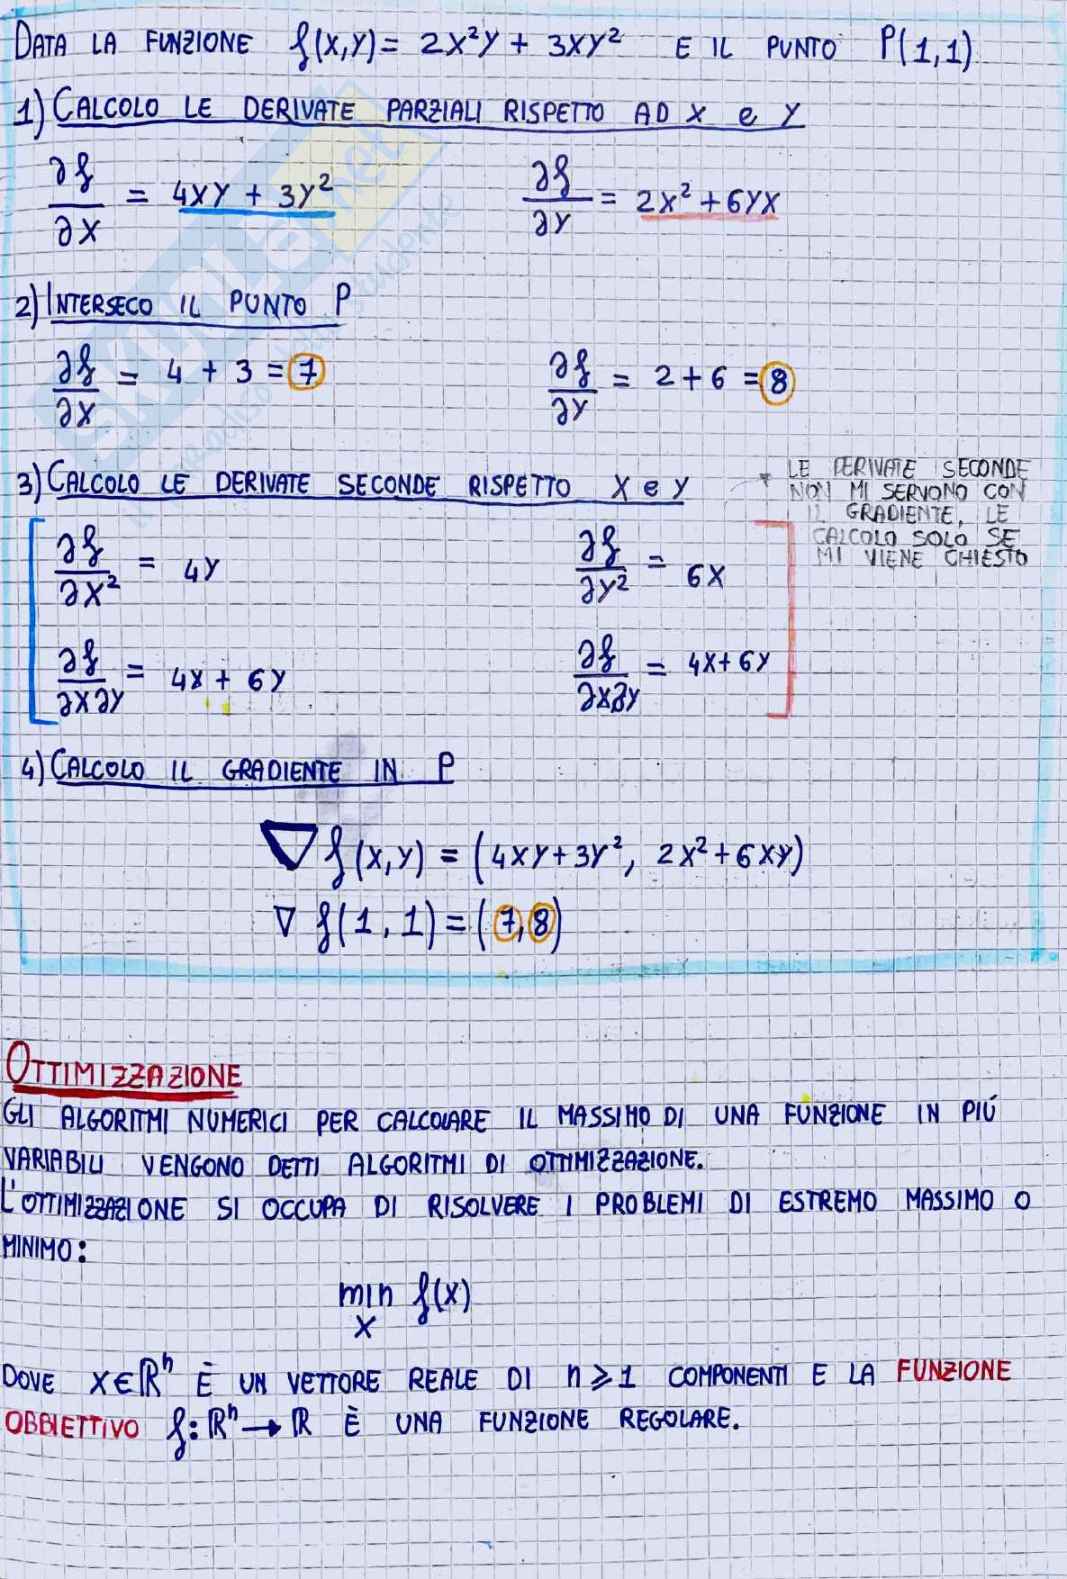 DATA LA FUNZIONE f(x,y) = 2x²y + 3xy² E IL PUNTO P(1,1)
1) CALCOLO LE DERIVATE PARZIALI RISPETTO AD x e y
∂f/∂x = 4xy + 3y² ∂f/∂y = 2x² + 6yx
2) INTERSECO IL PUNTO P
∂f/∂x = 4 + 3 = 7 ∂f/∂y = 2 + 6 = 8
3) CALCOLO LE DERIVATE SECONDE RISPETTO x e y
* LE DERIVATE SECONDE
NON MI SERVONO CON
IL GRADIENTE, LE
CALCOLO SOLO SE
MI VIENE CHIESTO
∂f/∂x² = 4y ∂f/∂y² = 6x
∂f/∂x∂y = 4x + 6y ∂f/∂x∂y = 4x + 6y
4) CALCOLO IL GRADIENTE IN P
∇f(x,y) = (4xy + 3y², 2x² + 6xy)
∇f(1,1) = (7,8)
OTTIMIZZAZIONE
GLI ALGORITMI NUMERICI PER CALCOLARE IL MASSIMO DI UNA FUNZIONE IN PIÚ
VARIABILI VENGONO DETTI ALGORITMI DI OTTIMIZZAZIONE.
L'OTTIMIZZAZIONE SI OCCUPA DI RISOLVERE I PROBLEMI DI ESTREMO MASSIMO O
MINIMO:
min f(x)
x
DOVE x∈ℝⁿ È UN VETTORE REALE DI n⩾1 COMPONENTI E LA FUNZIONE
OBBIETTIVO f: ℝⁿ → ℝ È UNA FUNZIONE REGOLARE.